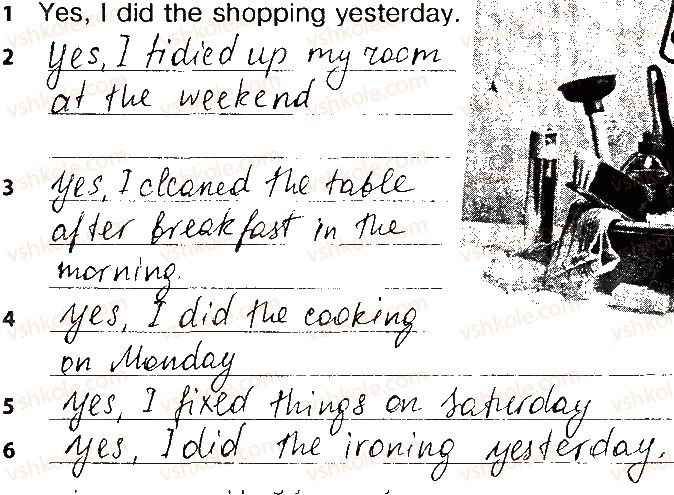 1 Yes, I did the shopping yesterday.
2 Yes, I tidied up my room
at the weekend
3 Yes, I cleaned the table
after breakfast in the
morning.
4 Yes, I did the cooking
on Monday
5 Yes, I fixed things on Saturday
6 Yes, I did the ironing yesterday.